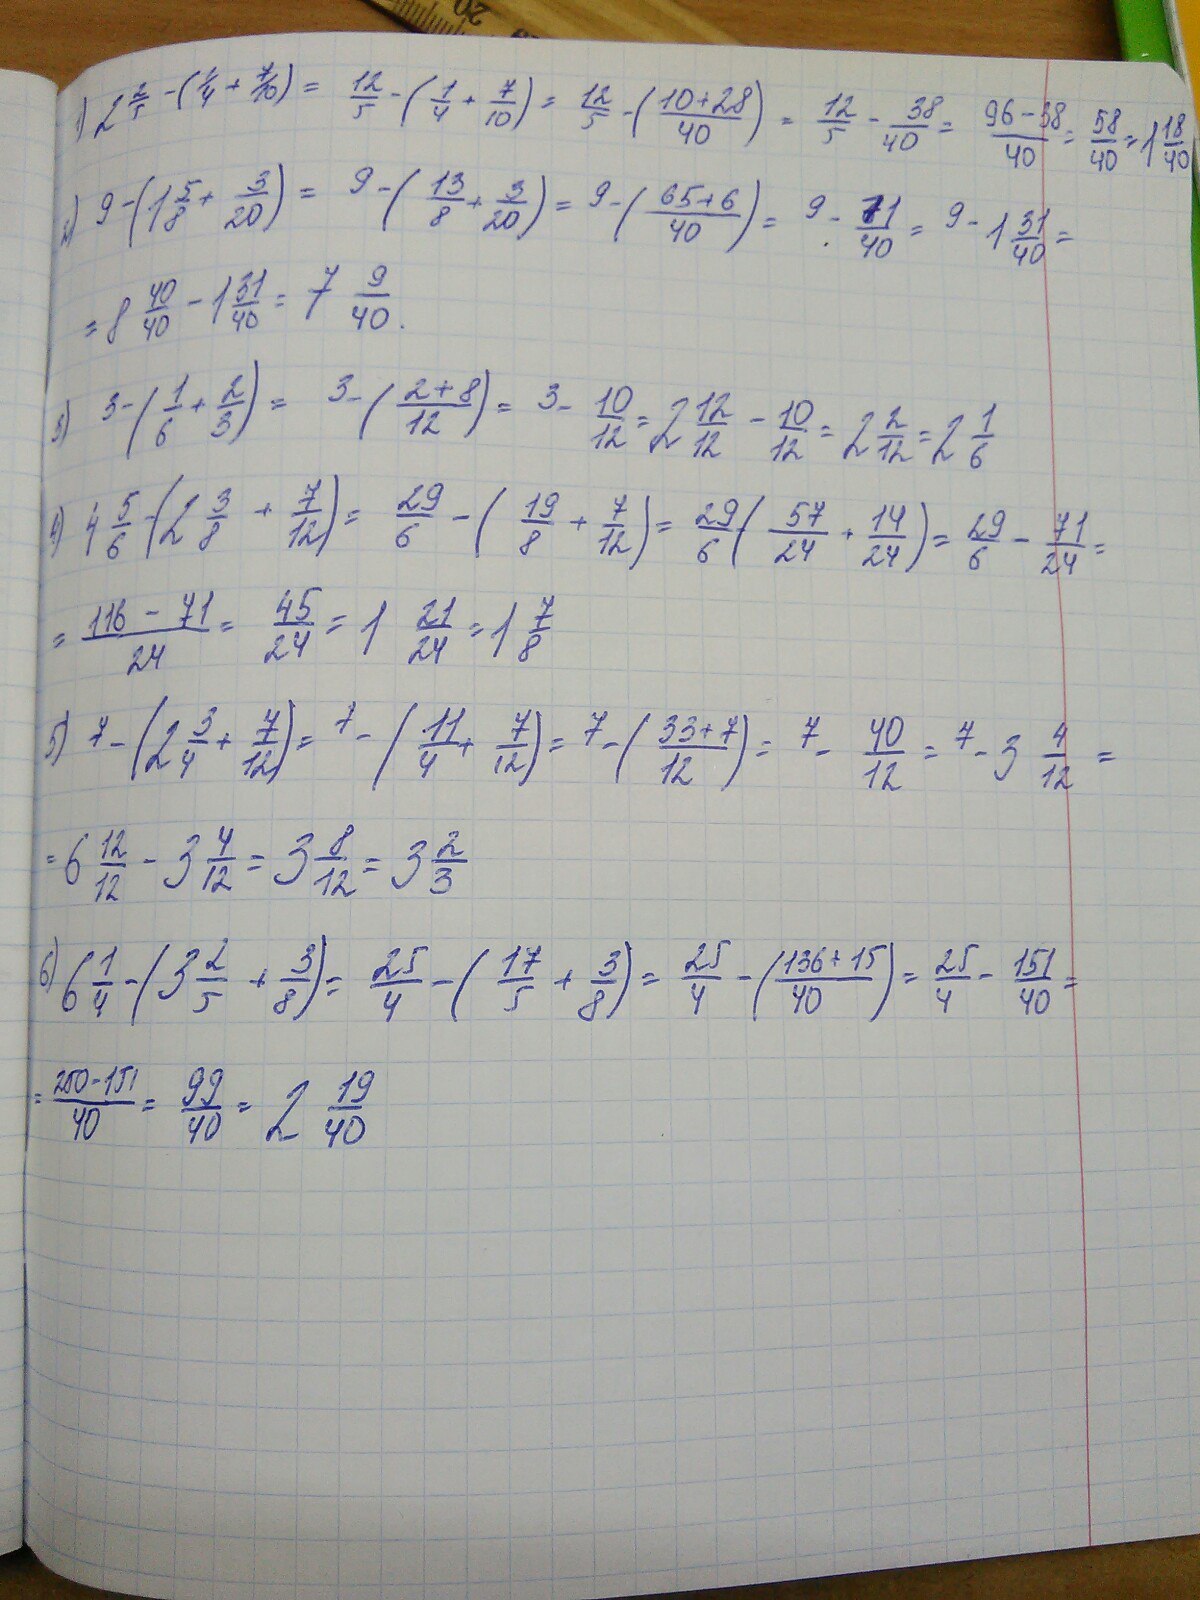 20
1) 2 2/5 - (1/4 + 7/10) = 12/5 - (1/4 + 7/10) = 12/5 - (10+28/40) = 12/5 - 38/40 = 96-38/40 = 58/40 = 1 18/40
2) 9 - (1 5/8 + 3/20) = 9 - (13/8 + 3/20) = 9 - (65+6/40) = 9 - 71/40 = 9 - 1 31/40 =
= 8 40/40 - 1 31/40 = 7 9/40.
3) 3 - (1/6 + 2/3) = 3 - (2+8/12) = 3 - 10/12 = 2 12/12 - 10/12 = 2 2/12 = 2 1/6
4) 4 5/6 - (2 3/8 + 7/12) = 29/6 - (19/8 + 7/12) = 29/6 (57/24 + 14/24) = 29/6 - 71/24 =
= 116-71/24 = 45/24 = 1 21/24 = 1 7/8
5) 7 - (2 3/4 + 7/12) = 7 - (11/4 + 7/12) = 7 - (33+7/12) = 7 - 40/12 = 7 - 3 4/12 =
= 6 12/12 - 3 4/12 = 3 8/12 = 3 2/3
6) 6 1/4 - (3 2/5 + 3/8) = 25/4 - (17/5 + 3/8) = 25/4 - (136+15/40) = 25/4 - 151/40 =
= 250-151/40 = 99/40 = 2 19/40